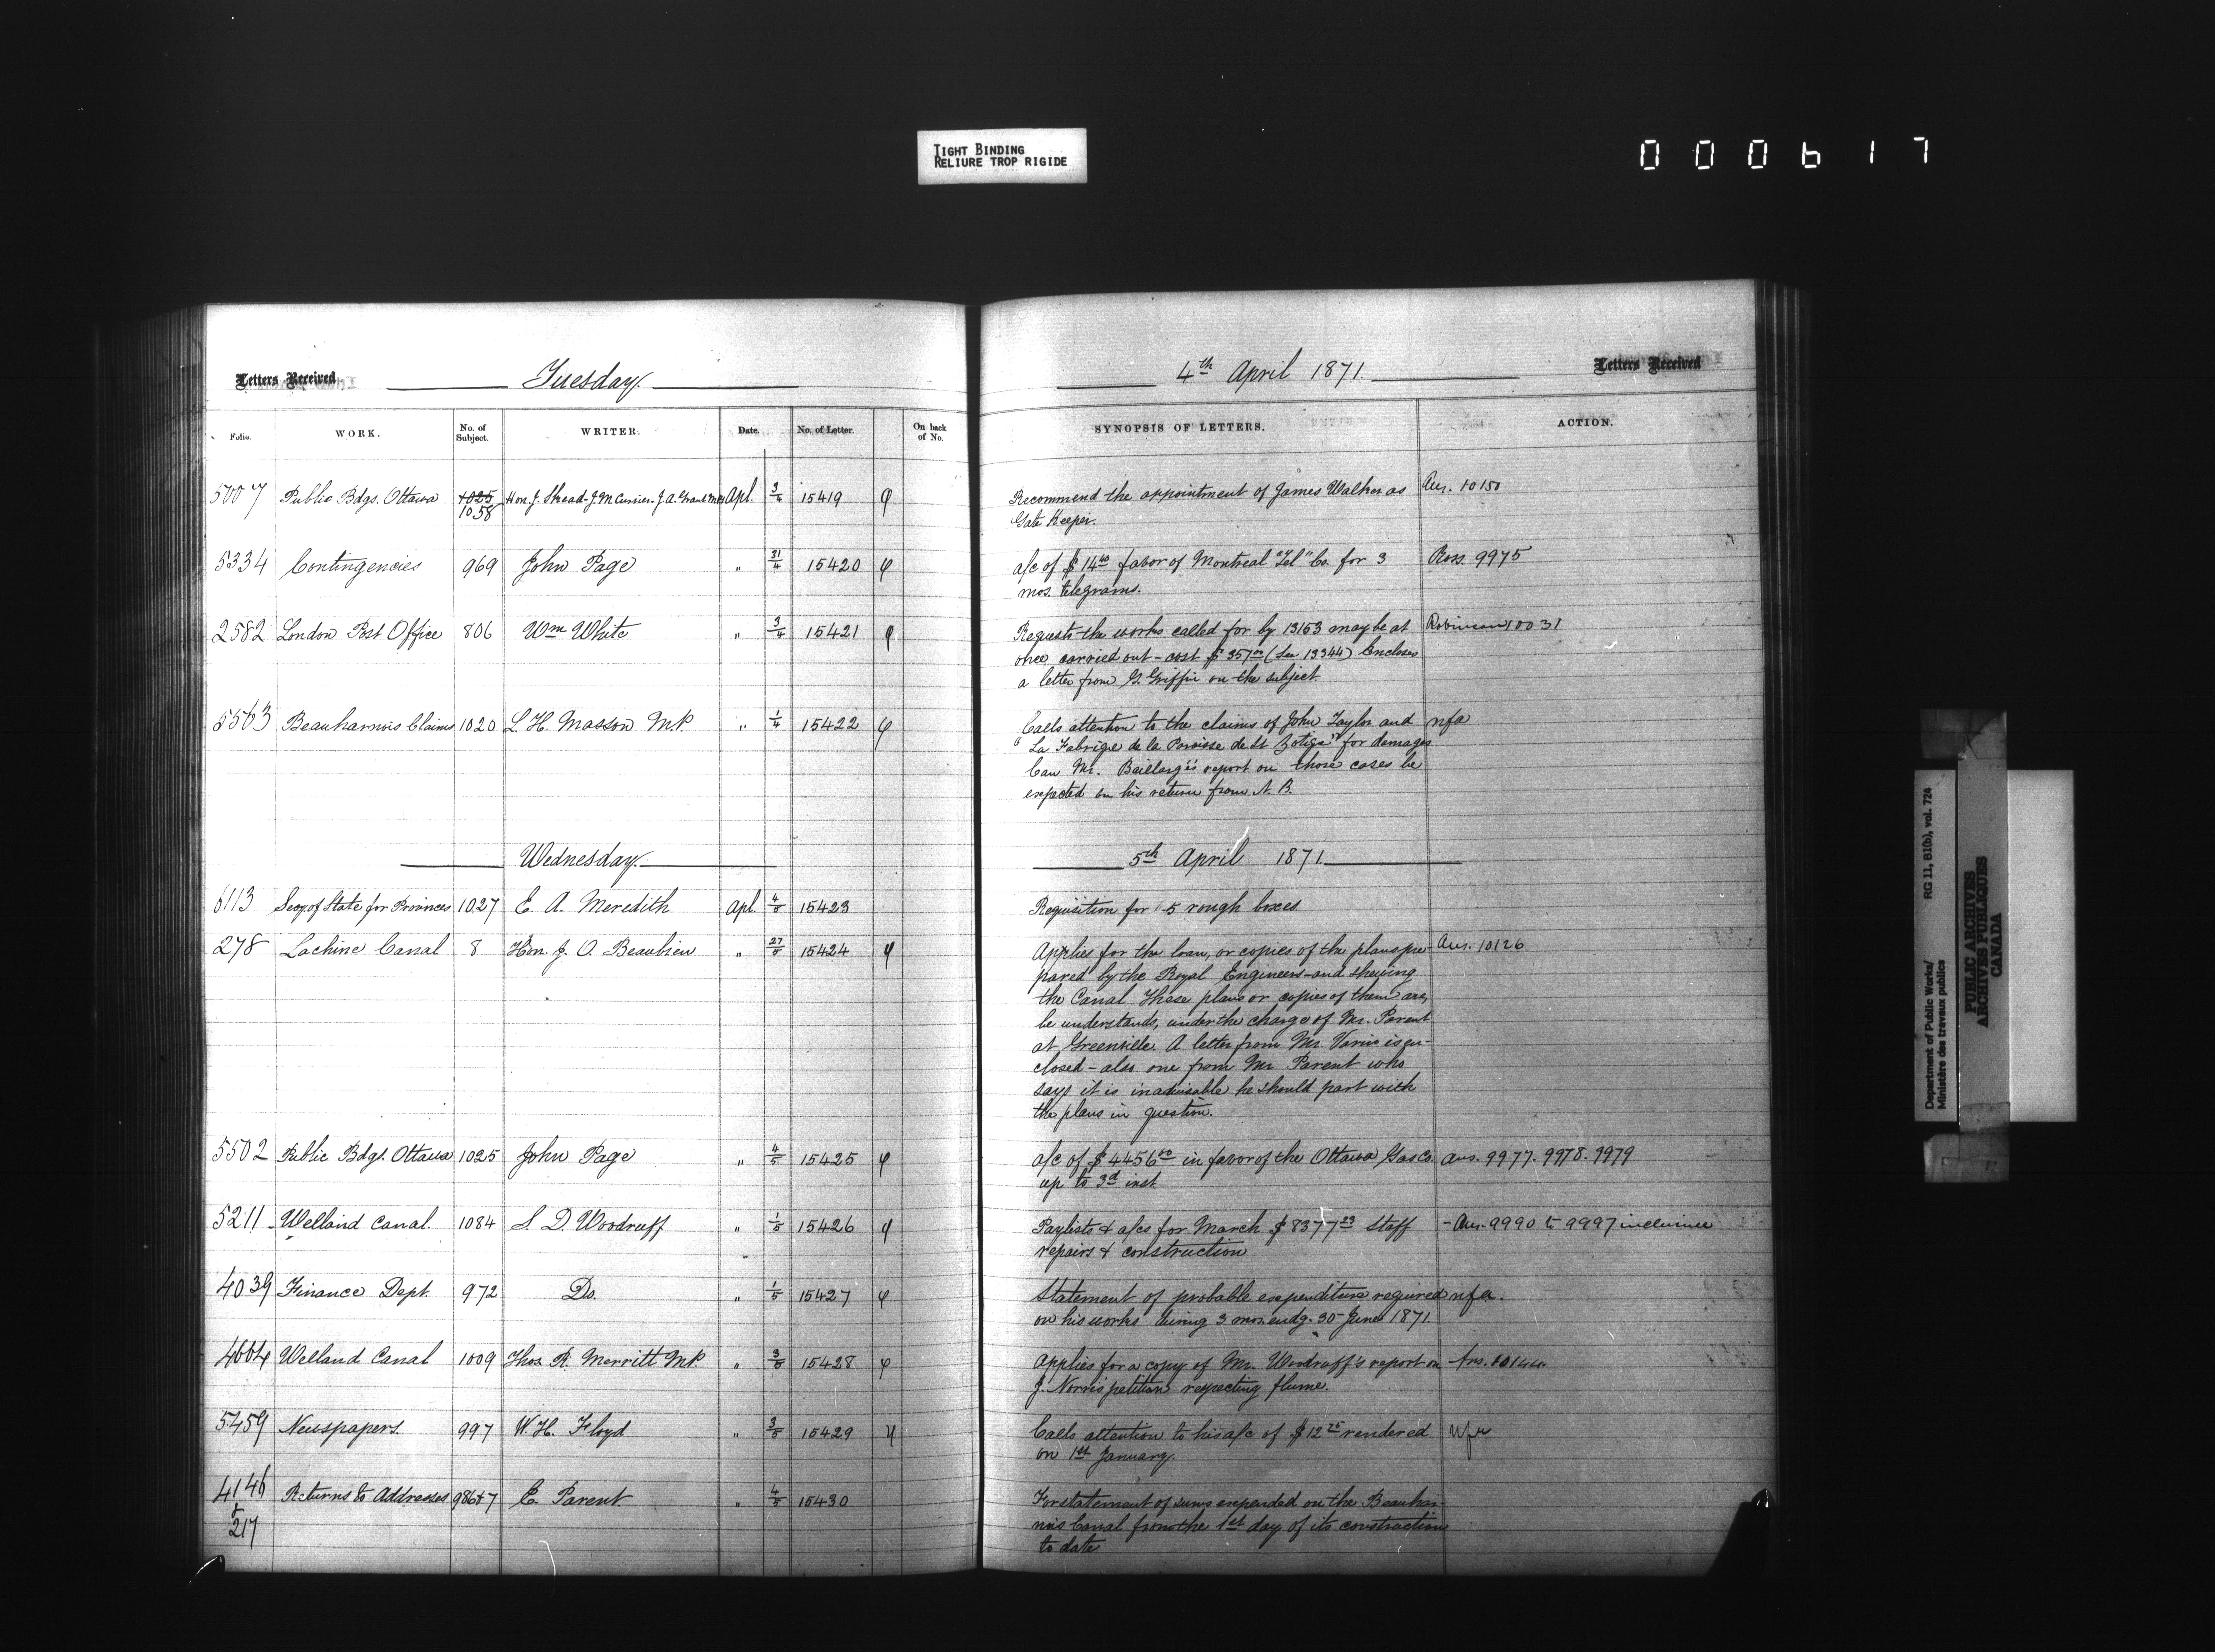 TIGHT BINDING
RELIURE TROP RIGIDE
000617
Letters Received Tuesday
Folio. WORK. No. of Subject. WRITER. Date. No. of Letter. On back of No.
5007 Public Bdgs. Ottawa 1025 1058 Hon. J. Skead - J. M Currier - J. A. Grant MPs Apl. 3/4 15419
5334 Contingencies 969 John Page " 31/4 15420
2582 London Post Office 806 Wm White " 3/4 15421
5563 Beauharnois Claims 1020 L. H. Masson M.P. " 1/4 15422
Wednesday
6113 Secy. of State for Provinces 1027 E. A. Meredith Apl. 4/5 15423
278 Lachine Canal 8 Hon. J. O. Beaubien " 27/5 15424
5502 Public Bdgs. Ottawa 1025 John Page " 4/5 15425
5211 Welland Canal. 1084 S. D. Woodruff " 1/5 15426
4039 Finance Dept. 972 Do. " 1/5 15427
4664 Welland Canal 1009 Thos. R. Merritt M.P. " 3/5 15428
5459 Newspapers. 997 W. H. Floyd " 3/5 15429
4146 Returns to Addresses 986+7 E. Parent " 4/5 15430
&
217
4th April 1871. Letters Received
SYNOPSIS OF LETTERS. ACTION.
Recommend the appointment of James Walker as Ans. 10150
Gate Keeper.
a/c of $14 favor of Montreal "Tel" Co. for 3 Ross. 9975
mos. telegrams.
Requests the works called for by 13153 may be at Robinson 10031
once carried out - cost $357 (See 13344) Encloses
a letter from G. Griffin on the subject.
Calls attention to the claims of John Taylor and nfa
"La Fabrique de la Paroisse de St Zotique" for damages
Can Mr. Baillargé's report on those cases be
expected on his return from N. B.
5th April 1871.
Requisition for 5 rough boxes
Applies for the loan, or copies of the plans pre- Ans. 10126
pared by the Royal Engineers and shewing
the Canal These plans or copies of them are,
he understands, under the charge of Mr. Parent
at Greenville. A letter from Mr. is en-
closed - also one from Mr Parent who
says it is inadvisable he should part with
the plans in question.
a/c of $4456 in favor of the Ottawa Gas Co. Ans. 9977. 9978. 9979
up to 3d inst.
Paylists & a/cs for March $8377 23 Staff - Ans. 9990 to 9997 inclusive
repairs & construction
Statement of probable expenditure required nfa.
on his works during 3 mos. endg. 30 June 1871.
Applies for a copy of Mr. Woodruff's report on Ans. 10144.
J. Norris petition respecting flume.
Calls attention to his a/c of $12 75 rendered nfa
on 1st January.
For statement of sums expended on the Beauhar-
nois Canal from the 1st day of its construction
to date
Department of Public Works/ RG 11, B1(b), vol. 724
Ministère des travaux publics
PUBLIC ARCHIVES
ARCHIVES PUBLIQUES
CANADA